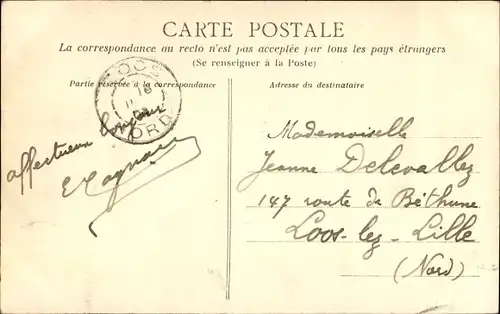 CARTE POSTALE
La correspondance au recto n'est pas acceptée par tous les pays étrangers
(Se renseigner à la Poste)
Partie réservée à la correspondance
Adresse du destinataire
LOOS
NORD
affectueux bonjour
Mademoiselle
Jeanne Delevallez
147 route de Béthune
Loos-lez-Lille
(Nord)